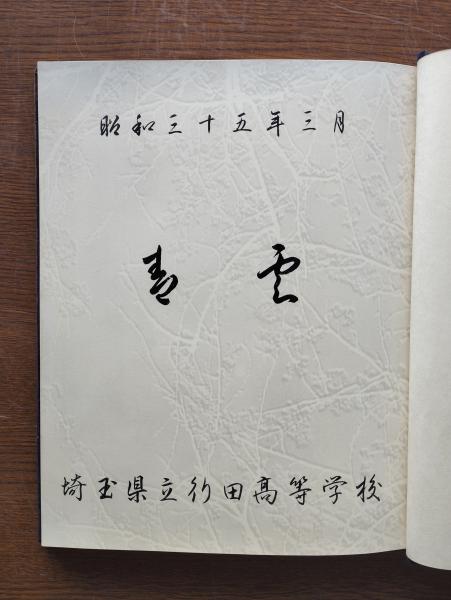 昭和三十五年三月
青雲
埼玉県立行田高等学校